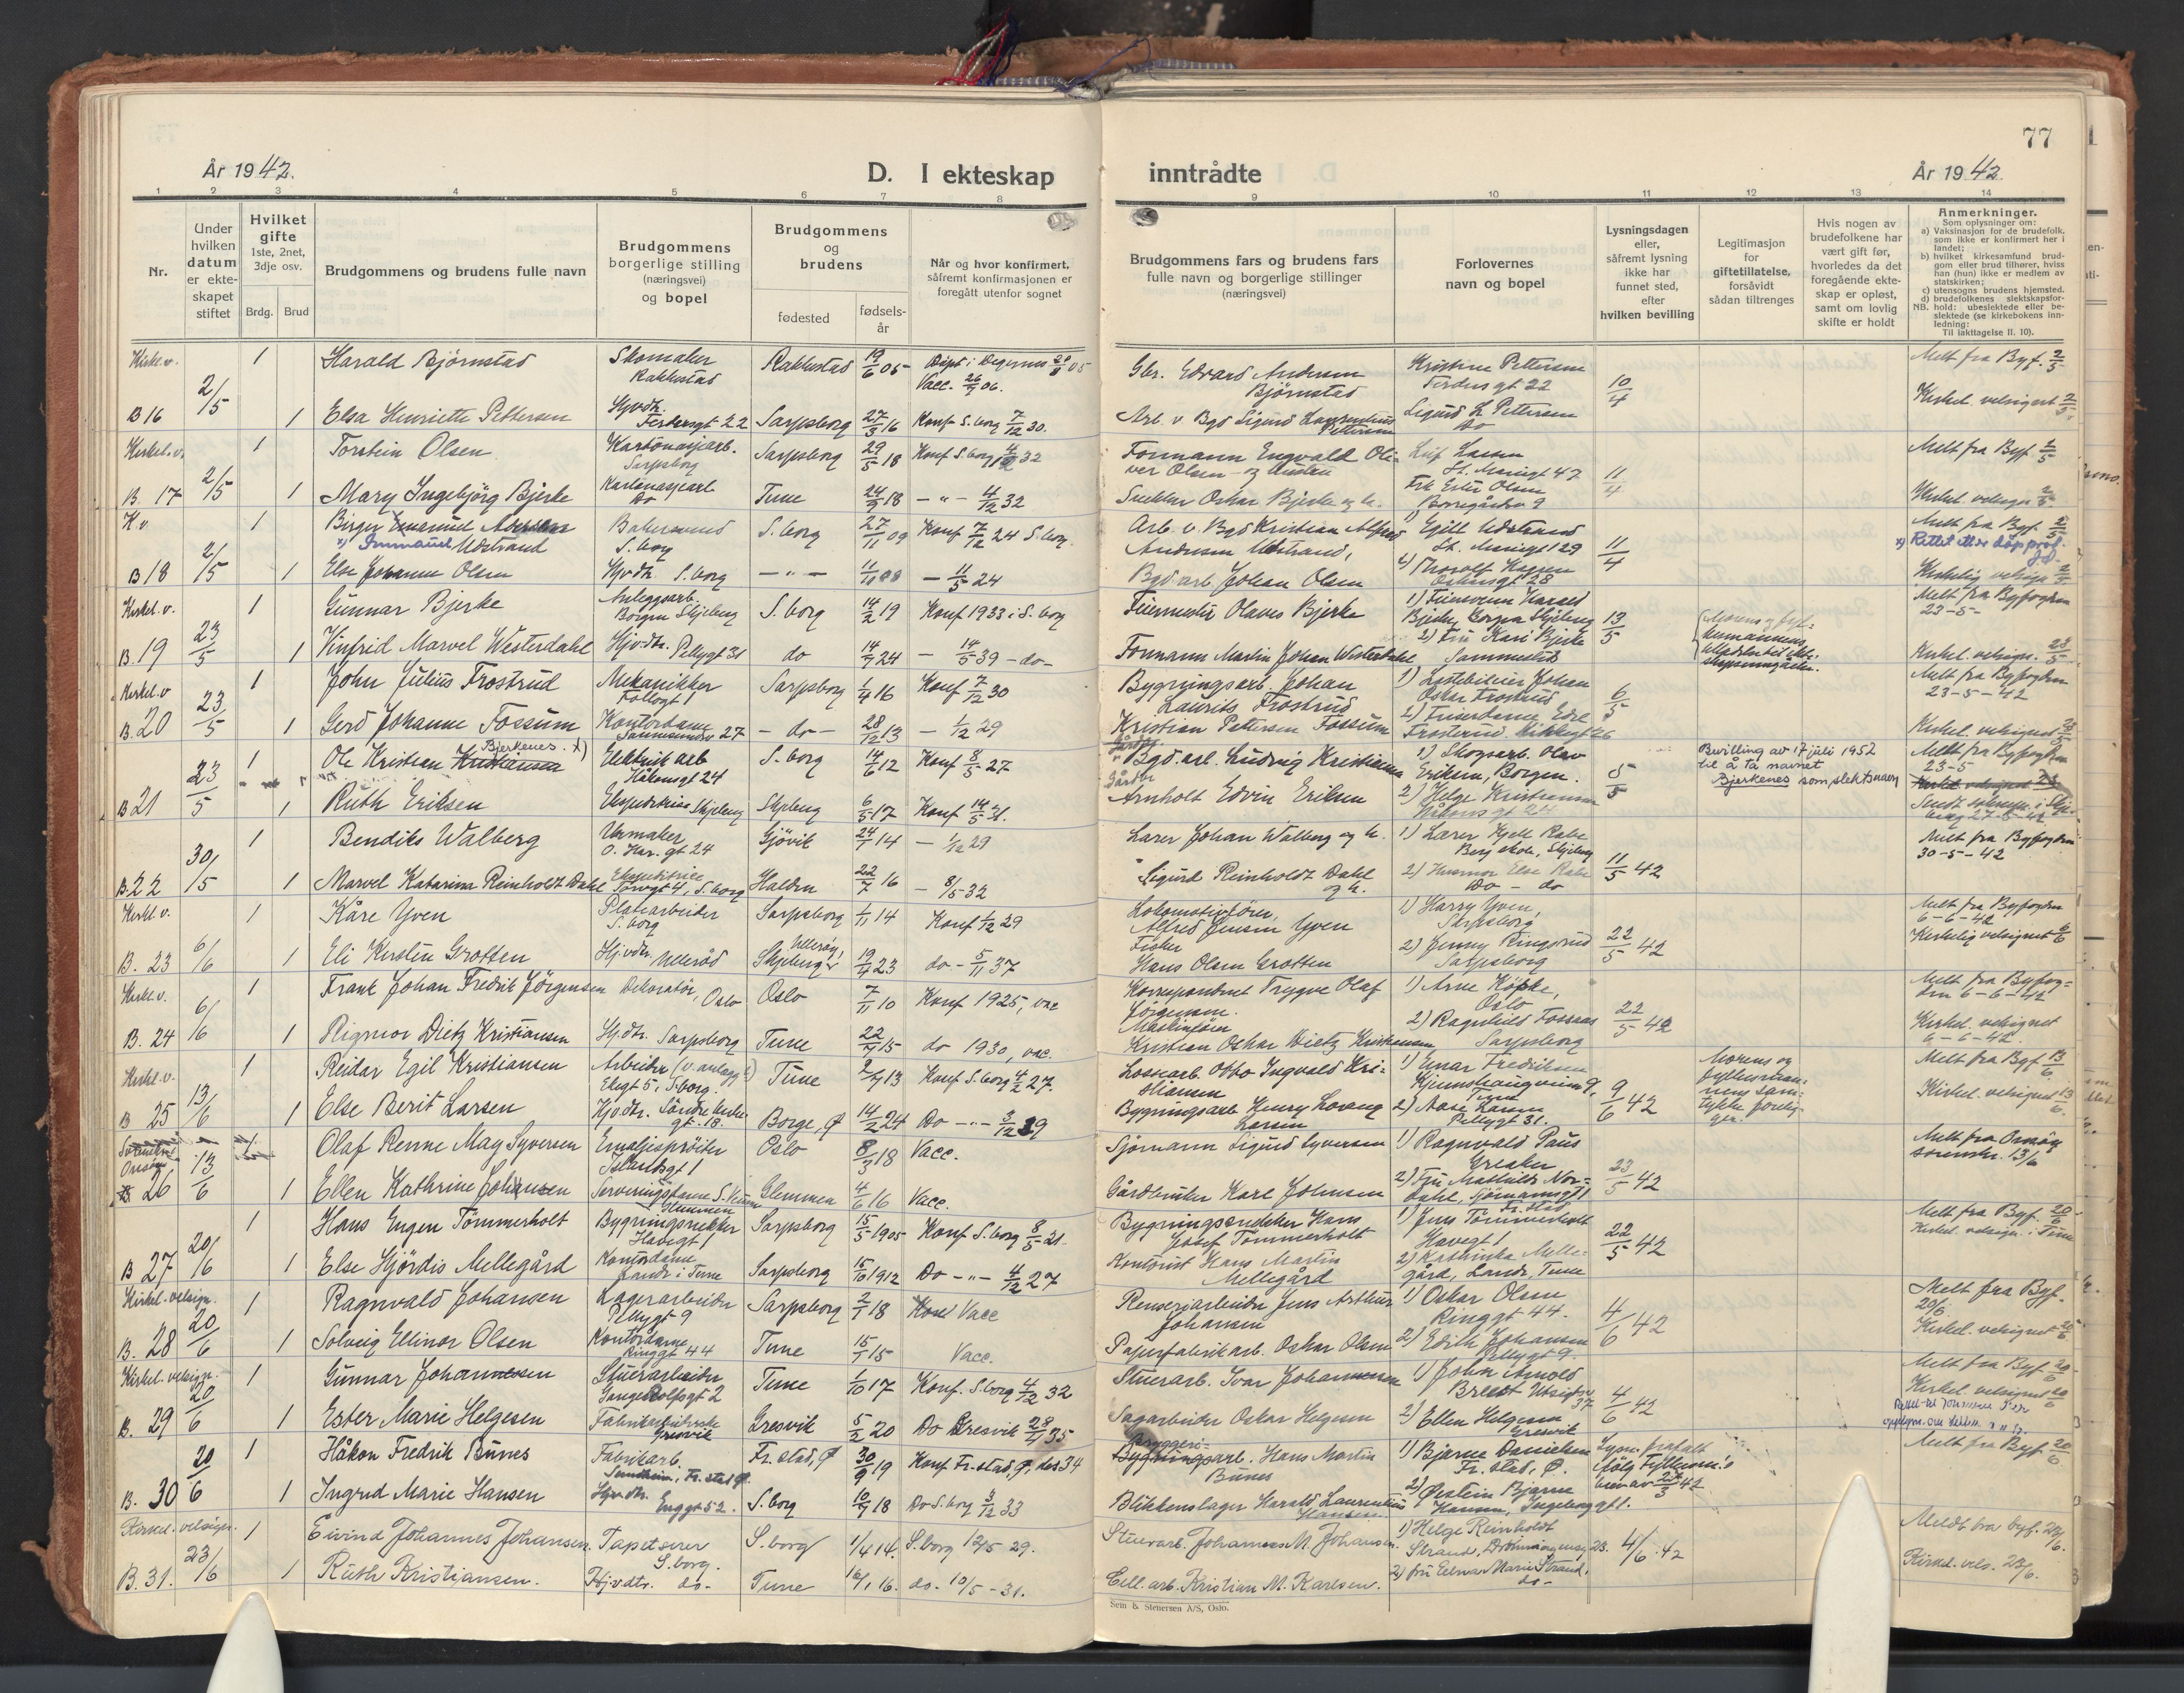 77
År 1942.
D. I ekteskap inntrådte
År 1942.
1 2 3 4 5 6 7 8 9 10 11 12 13 14
Nr.
Under hvilken datum er ekteskapet stiftet
Hvilket gifte 1ste, 2net, 3dje osv.
Brdg. Brud
Brudgommens og brudens fulle navn
Brudgommens borgerlige stilling (næringsvei) og bopel
Brudgommens og brudens
fødested
fødselsår
Når og hvor konfirmert, såfremt konfirmasjonen er foregått utenfor sognet
Brudgommens fars og brudens fars fulle navn og borgerlige stillinger (næringsvei)
Forlovernes navn og bopel
Lysningsdagen eller, såfremt lysning ikke har funnet sted, efter hvilken bevilling
Legitimasjon for giftetillatelse, forsåvidt sådan tiltrenges
Hvis nogen av brudefolkene har vært gift før, hvorledes da det foregående ekteskap er opløst, samt om lovlig skifte er holdt
Anmerkninger.
Som oplysninger om:
a) Vaksinasjon for de brudefolk, som ikke er konfirmert her i landet;
b) hvilket kirkesamfund brudgom eller brud tilhører, hviss han (hun) ikke er medlem av statskirken;
c) utensogns brudens hjemsted.
d) brudefolkenes slektskapsforhold: ubeslektede eller beslektede (se kirkebokens innledning:
NB.
Til iakttagelse II. 10).
Kirkel. v. 1 Harald Bjørnstad Skomaker Rakkestad Rakkestad 19/6 05 Døpt i Degernes 05 Vacc. 06. Gbr. Edvard Andersen Bjørnstad Kristine Pettersen Ferdens gt 22 10/4 Melt fra Byf. 2/5
B 16 2/5 1 Elsa Henriette Pettersen Hjvdtr. Sarpsborg 27/3 16 Konf S. borg 7/12 30. Arb. v. Bgd Sigurd Laurentius Pettersen Sigurd L. Pettersen do Kirkel. velsignet 2/5
Kirkel. v. 1 Torstein Olsen Kartonasjearb. Sarpsborg Sarpsborg 29/5 18 Konf S. borg 32 Formann Engvald Oliver Olsen Leif Larsen St. Mariegt 47 11/4 Melt fra Byf. 2/5
B. 17 2/5 1 Mary Ingebjørg Bjerke Kartonasjearb do Tune 24/9 18 — " — 4/12 32 Snekker Oskar Bjerke og h. Frk Ester Olsen Borregårdsv 9 Kirkel. velsign. 2/5
K. v 1 Birger Emanuel x) Immanuel Udstrand S. borg S. borg 27/11 09 Konf 7/12 24 S. borg. Arb. v. Bgd Kristian Alfred Andersen Udstrand, Egill Udstrand St. Mariegt 29 11/4 Melt fra Byf. 2/5 x) Rettet etter dåp prot.
B 18 2/5 1 Else Johanne Olsen Hjvdtr. S. borg — " — 11/11 08 — 11/5 24 Bgd arb. Johan Olsen 2) Thoralf Hansen Kirkelig velsign 2/5
Kirkel. v. 1 Gunnar Bjerke Anleggsarb. Borgen Skjeberg S. borg 14/2 19 Konf 1933 i S. borg Feiermester Olaves Bjerke 1) Feiersvenn Harald Bjerke, Borgen Skjeberg 13/5 Melt fra Byfogden 23-5-
B. 19 23/5 1 Vinfrid Marvel Westerdahl Hjvdtr. Pellygt 31 do 14/9 24 — 14/5 39 - do - Formann Martin Johan Westerdahl 2) Fru Kari Bjerke Sammesteds Kirkel. velsign. 23/5
Kirkel. v 1 John Julius Frostrud Mekanikker Sarpsborg 1/4 16 Konf 7/12 30 Bygningsarb. Johan Laurits Frostrud 1) Lastebileier Johan Oskar Frostrud 6/5 Melt fra Byfogden 23-5-42
B. 20 23/5 1 Gerd Johanne Fossum Kontordame 27 - do - 28/12 13 — 1/12 29 Kristian Pettersen Fossum 2) Frostrud 26 Kirkel. velsignet 23/5
1 Ole Kristian Kristiansen Bjerkenes. x) Elektrik arb Håkonsgt 24 S. borg 14/6 12 Konf 8/5 27 Bgd. arb. Ludvig Kristiansen 1) Skogsarb. Olav Eriksen, Borgen. 5/5 Bevilling av 17 juli 1952 til å ta navnet Bjerkenes som slektsnavn Melt fra Byfogden 23-5
B 21 23/5 1 Ruth Eriksen Ekspeditrise Skjeberg Skjeberg 6/5 17 Konf 14/5 31. Gårdbr Arnholt Edvin Eriksen 2) Helge Kristiansen Håkonsgt 24
1 Bendiks Walberg Urmaker O. Har. gt 24 Gjøvik 24/1 14 — 1/12 29 Lærer Johan Walberg og h. 1) Lærer Kjell Rabe Berg skole, Skjeberg Melt fra Byfogden 30-5-42
B. 22 30/5 1 Marvel Katarina Reinholdt Dahl Ekspeditrice Torvgt 4, S. borg Halden 22/7 16 — 8/5 32 Sigurd Reinholdt Dahl og h. 2) Husmor Else Rabe do - do 11/5 42
Kirkl. v. 1 Kåre Yven Platearbeider S. borg Sarpsborg 1/11 14 Konf 1/12 29 Lokomotivfører, Alfred Jensen Yven 1) Harry Yven, Sarpsborg Melt fra Byfogden 6-6-42
B. 23 6/6 1 Eli Kirsten Grotten Hjvdtr Ullerøy, Skjeberg 19/4 23 do - 5/11 37 Fisker Hans Olsen Grotten 2) Jenny Ringsrud Sarpsborg 22/5 42 Kirkelig velsignet 6/6
Kirkl. v. 1 Frank Johan Fredrik Jørgensen Dekoratør, Oslo Oslo 7/11 10 Konf 1925, vac Korrespondent Trygve Olaf Jørgensen. 1) Arne Köpke, Oslo 22/5 42 Melt fra Byfogden 6-6-42
B. 24 6/6 1 Rigmor Dietz Kristiansen Hjvdtr. Sarpsborg Tune 22/4 15 do 1930, vac. Maskinfører Kristian Oskar Dietz Kristiansen 2) Ragnhild Fossaas Sarpsborg Kirkel. velsignet 6-6-42.
Kirkel. v. 1 Reidar Egil Kristiansen Arbeider (v. anlegg) S. borg Tune 13 Konf S. borg 4/2 27. Lossearb. Otto Ingvald Kristiansen 1) Einar Fredriksen Tune 9/6 42 Morens og fyllesmannens samtykke foreligger. Melt fra Byf 13/6
B 25 13/6 1 Else Berit Larsen Hjvdtr. gt. 18 Borge, Ø 14/2 24 Do - " - 3/12 39 Bygningsarb Henry Larsen 2) Aase Larsen Pellygt 31. Kirkel. velsignet 13/6.
Olaf Renne May Syversen Oslo 8/3 18 Vacc. Sjømann Sigurd Syversen 1) Ragnvald Paus Greaker Melt fra Onsøy sorenskr. 13/6
26 13/6 1 Ellen Kathrine Johansen Glemmen 4/6 16 Vacc. Gårdbruker Karl Johnsen 2) Fru Mathilde Nordahl, Sjømannsgt 1 Fr. stad 23/5 42
1 Hans Eugen Tømmerholt Bygningsnekker Havegt 1 Sarpsborg 15/5 1905 Konf S. borg 8/5 21. Bygningssnekker Hans Josef Tømmerholt 1) Jens Tømmerholt Havegt 1 22/5 42 Melt fra Byf. 20/6 Kirkel. velsign. i Tune
B 27 20/6 1 Else Hjørdis Mellegård Kontordame Lande i Tune Sarpsborg 15/10 1912 Do - " - 4/12 27 Kontorist Hans Martin Mellegård 2) Kathinka Mellegård, Lande, Tune
Kirkel. velsign. 1 Ragnvald Johansen Lagerarbeider Pellygt 9 Sarpsborg 2/1 18 Vacc Renseriarbeider Jens Arthur Johansen 1) Oskar Olsen Ringgt 44. 4/6 42 Melt fra Byf. 20/6
B. 28 20/6 1 Solveig Ellinor Olsen Kontordame Ringgt 44 Tune 15/1 15 Vacc. Papirfabrikarb. Oskar Olsen 2) Edith Johansen Pellygt 9. Kirkel. velsignet 20/6
Kirkel. velsign. 1 Gunnar Johannesen Stuerarbeider Gangerolfsgt 2 Tune 1/10 17 Konf. S. borg 4/12 32 Stuerarb. Ivar Johannesen 1) John Arnold 37 4/6 42 Melt fra Byf. 20/6
B. 29 20/6 1 Ester Marie Helgesen Fabrikarbeiderske Gresvik Gresvik 5/2 20 Do Gresvik 28/4 35 Sagarbeider Oskar Helgesen 2) Ellen Helgesen Gresvik Kirkel. velsignet 20/6
1 Håkon Fredrik Bunes Fabrikarb. Fr. stad Ø. Fr. stad, Ø 30/9 19 Konf Fr. stad, Ø, 34 Bryggeriarb. Hans Martin Bunes 1) Bjarne Danielsen Fr. stad, Ø. Lysn. frafalt Melt fra Byf. 20/6
B. 30 20/6 1 Ingrid Marie Hansen Hjvdtr. Enggt 52. S. borg 10/9 18 Do S. borg 3/12 33 Blikkenslager Harald Laurentius Hansen 2) Øistein Bjarne Hansen, Ingeborggt 1.
Kirkel. velsign. 1 Eivind Johannes Johansen Tapetserer S. borg. S. borg 1/4 14. S. borg 12/5 29. Stuerarb. Johannes M. Johansen 1) Helge Reinholdt Strand, 23. 4/6 42 Meldt fra byf. 23/6.
B. 31. 23/6 1 Ruth Kristiansen. Hjvdtr. do. Tune 16/1 16. do. 10/5 - 31. Cell. arb. Kristian M. Karlsen. 2) fru Edna Marie Strand, do - Kirkel. vels. 23/6.
Sem & Stenersen A/S, Oslo.